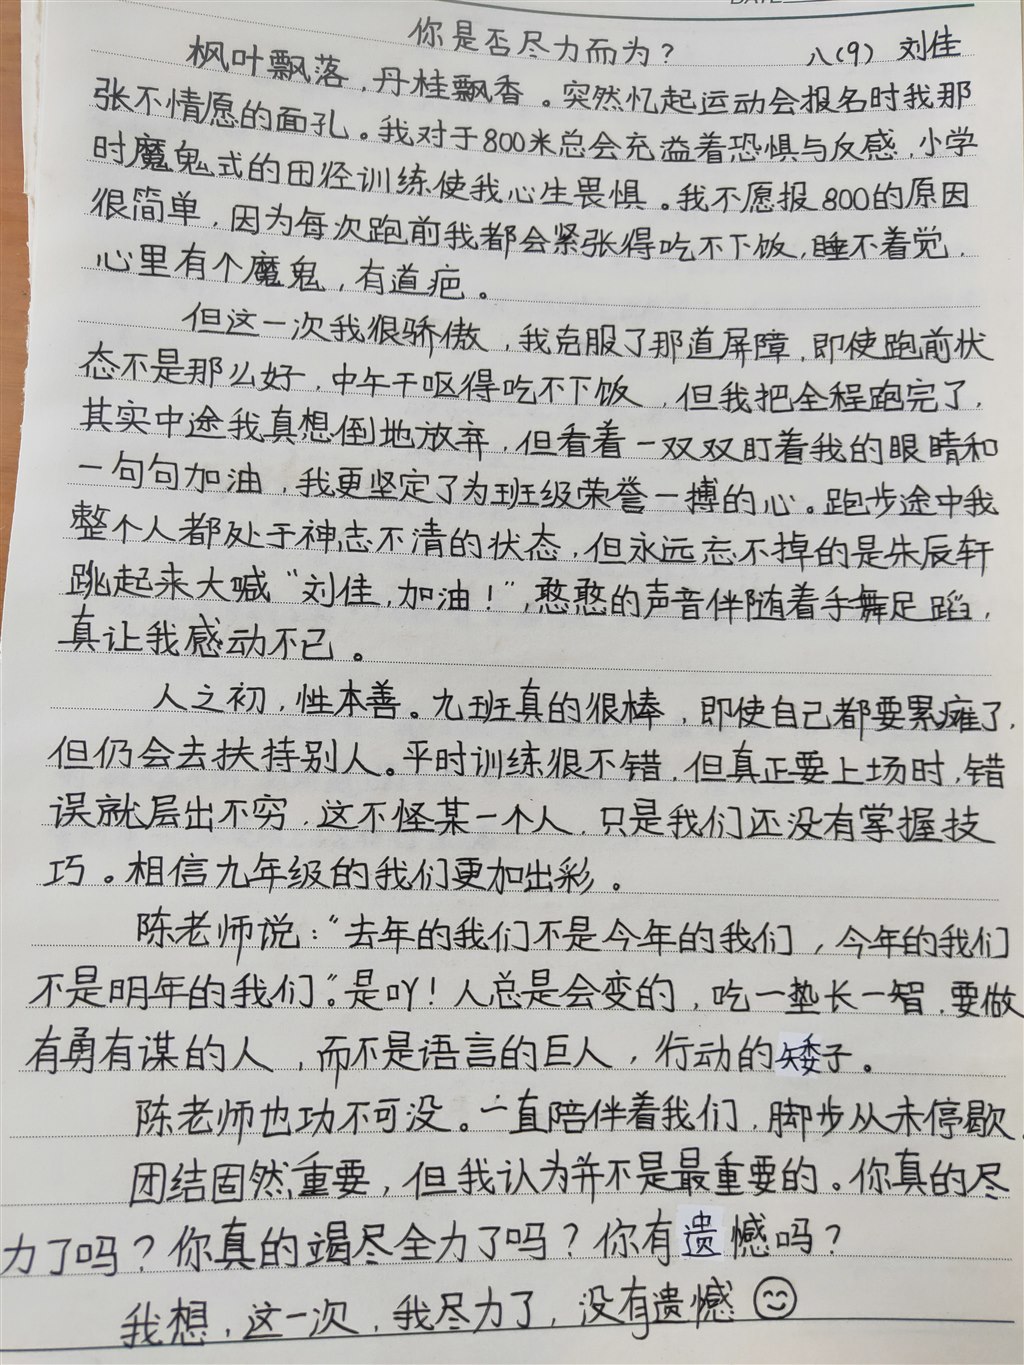 DATE
你是否尽力而为？
八(9) 刘佳
枫叶飘落，丹桂飘香。突然忆起运动会报名时我那
张不情愿的面孔。我对于800米总会充溢着恐惧与反感，小学
时魔鬼式的田径训练使我心生畏惧。我不愿报800的原因
很简单，因为每次跑前我都会紧张得吃不下饭，睡不着觉，
心里有个魔鬼，有道疤。
但这一次我很骄傲，我克服了那道屏障，即使跑前状
态不是那么好，中午干呕得吃不下饭，但我把全程跑完了，
其实中途我真想倒地放弃，但看着一双双盯着我的眼睛和
一句句加油，我更坚定了为班级荣誉一搏的心。跑步途中我
整个人都处于神志不清的状态，但永远忘不掉的是朱辰轩
跳起来大喊“刘佳，加油！”，憨憨的声音伴随着手舞足蹈，
真让我感动不已。
人之初，性本善。九班真的很棒，即使自己都要累瘫了，
但仍会去扶持别人。平时训练很不错，但真正要上场时，错
误就层出不穷，这不怪某一个人，只是我们还没有掌握技
巧。相信九年级的我们更加出彩。
陈老师说：“去年的我们不是今年的我们，今年的我们
不是明年的我们”。是吖！人总是会变的，吃一垫长一智，要做
有勇有谋的人，而不是语言的巨人，行动的矮子。
陈老师也功不可没。一直陪伴着我们，脚步从未停歇。
团结固然重要，但我认为并不是最重要的。你真的尽
力了吗？你真的竭尽全力了吗？你有遗憾吗？
我想，这一次，我尽力了，没有遗憾